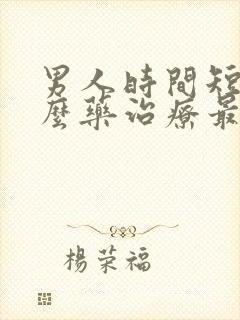 男人時間短
麼藥治療最
楊荣福